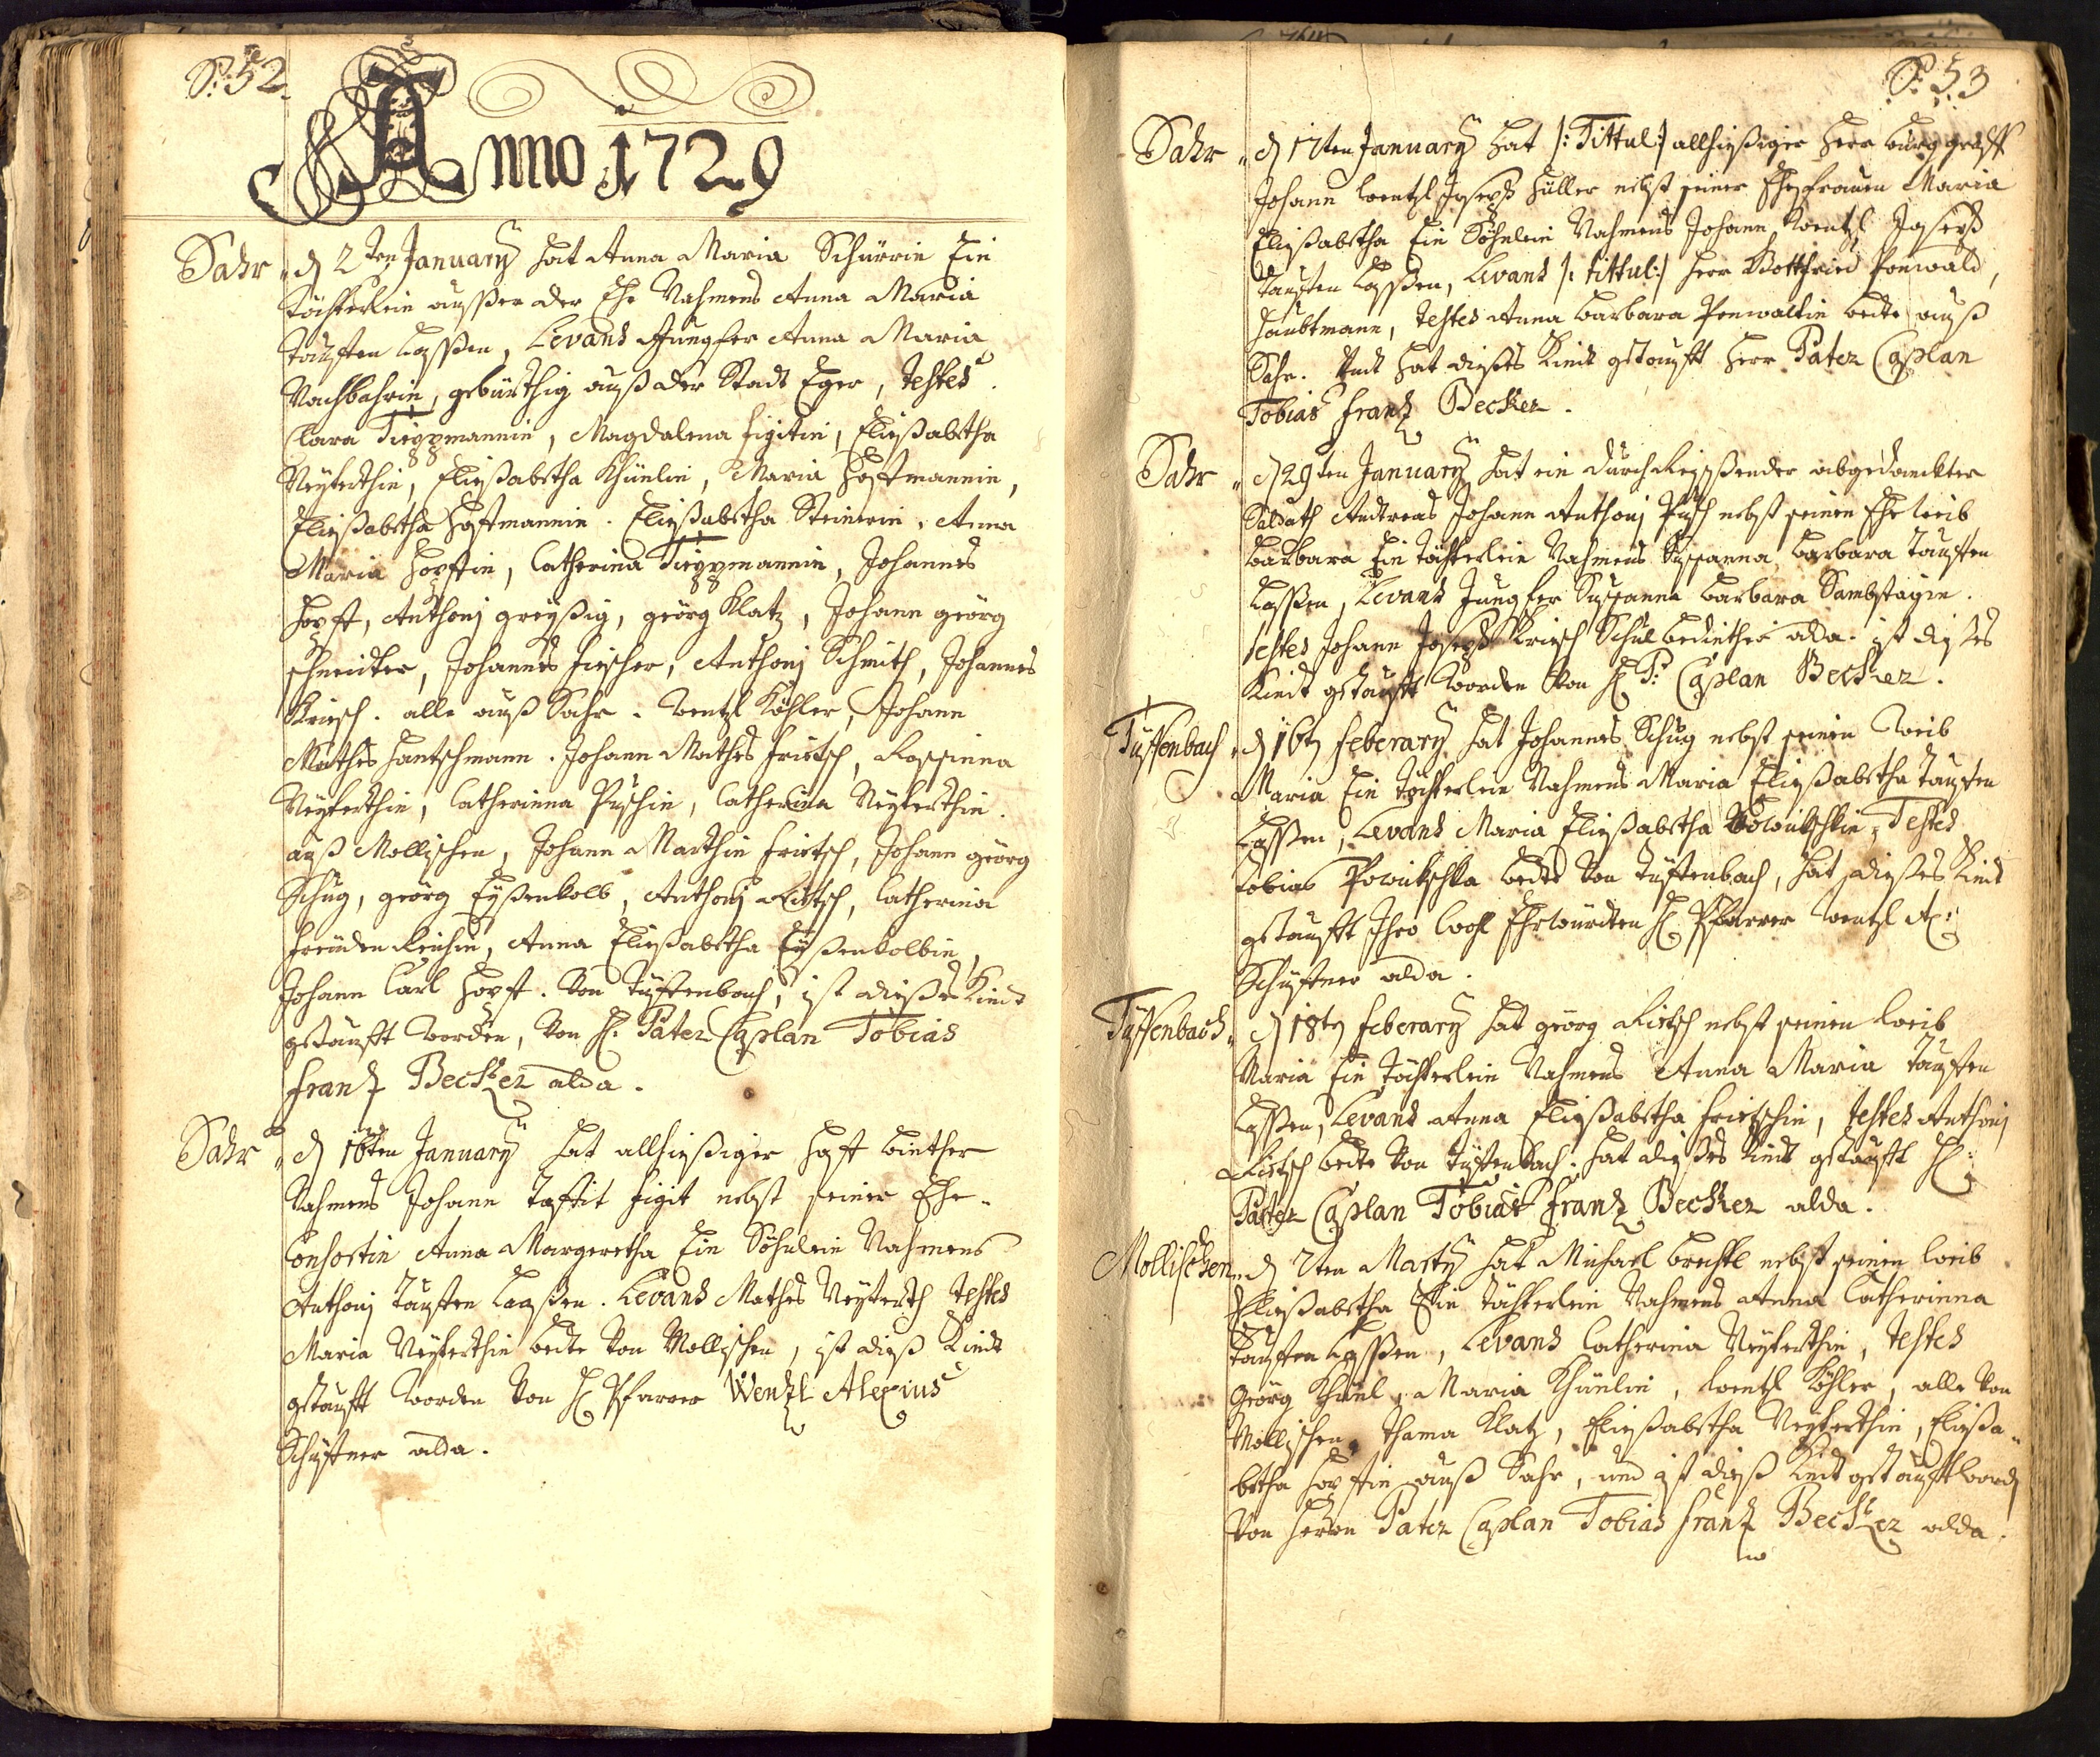 P: 52
Anno 1729
Sahr „ d 2ten January hat Anna Maria Schürrin Ein
Töchterlein ausser der Ehe Nahmens Anna Maria
tauffen Lassen, Levans Jungfer Anna Maria
Nachbahrin, gebürthig auß der Stadt Eger, testes.
Clara Tieppmannin, Magdalena Figitin, Elisabetha
Neyterthin, Elisabetha Khünlin, Maria Hoffmannin,
Elisabetha Hoffmannin. Elisabetha Steinerin, Anna
Maria Hopffin, Catherina Tieppmannin, Johannes
Hopff, Anthonj greyßig, georg Klatz, Johann georg
schneider, Johannes Fischer, Anthonj Schmith, Johannes
Kriesch. alle auß Sahr. Wentzl Köhler, Johann
Mathes Hantschmann. Johann Mathes Frietsch, Rossinna
Neyterthin, Catherinna Puschin, Catherina Neyterthin.
auß Mollischen, Johann Marthin Frietsch, Johann georg
Schug, georg Eyßenkolb, Anthonj Rietsch, Catherina
Freüden Reichin, Anna Elisabetha Eyßenkolbin,
Johann Carl Hopff. Von Tüffenbach, ist dießes Kindt
getaufft worden, Von H. Pater Caplan Tobias
Frantz Becker alda.
Sahr „ d 16ten January hat allhießiger Hoff binther
Nahmens Johann Figit nebst seiner Ehe-
Consortin Anna Margeretha Ein Söhnlein Nahmens
Anthonj tauffen Laaßen. Levans Mathes Neyterth testes
Maria Neyterthin beide Von Mollischen, ist dieß Kindt
getaufft worden Von H Pfarrer Wenzl Alexius
Schüffner alda.
P: 53
Sahr „ d 17ten January hat /: Tittul :/ allhießiger Herr burggraff
Johann Wentzl Joseph Hüller nebst seiner Ehefrauen Maria
Elisabetha Ein Söhnlein Nahmens Johann Wentzl Joseph
tauffen Lassen, Levans /: tittul :/ Herr Gottfried Penwald,
Haubtmann, testes Anna Barbara Penwaltin beide auß
Sahr. Undt hat dießes Kindt getaufft Herr Pater Caplan
Tobias Frantz Becker.
Sahr „ d 29ten January hat ein durch Reissender abgedanckter
Soldath Andreas Johann Anthonj Pusch nebst seinen Eheweib
Barbara Ein töchterlein Nahmens Susanna Barbara tauffen
Lassen, Levans Jungfer Susanna Barbara Sambstagin.
testes Johann Joseph Kriesch Schulbedinther alda. ist dießes
Kindt getaufft worden Von H P: Caplan Becker.
Tüffenbach „ d 16t Feberary hat Johannes Schug nebst seinen Weib
Maria Ein töchterlein Nahmens Maria Elisabetha tauffen
Lassen, Levans Maria Elisabetha Powitschkin, Testes
Tobias Powitschka beide Von Tüffenbach, hat dießes Kindt
getaufft Ihro Wohl Ehrwürden H Pfarrer Wentzl A:
Schüffner alda.
Tüffenbach „ d 18t Feberary hat georg Rietsch nebst seinen Weib
Maria Ein töchterlein Nahmens Anna Maria tauffen
Lassen, Levans Anna Elisabetha Frietschin, testes Anthonj
Rietsch beide Von Tüffenbach. hat dießes Kindt getaufft H
Pater Caplan Tobias Frantz Becker alda.
Mollischen „ d 2ten Marty hat Michael brechtl nebst seinen Weib
Elisabetha Ein töchterlein Nahmens Anna Catherinna
tauffen Lassen, Levans Catherina Neyterthin, testes
Georg Khünl, Maria Khünlin, Wentzl Köhler, alle Von
Mollischen, Thama Klatz, Elisabetha Neyterthin, Elisa„
betha Hopffin auß Sahr, und ist dieß Kindt getaufft word
Von Herrn Pater Caplan Tobias Frantz Becker alda.